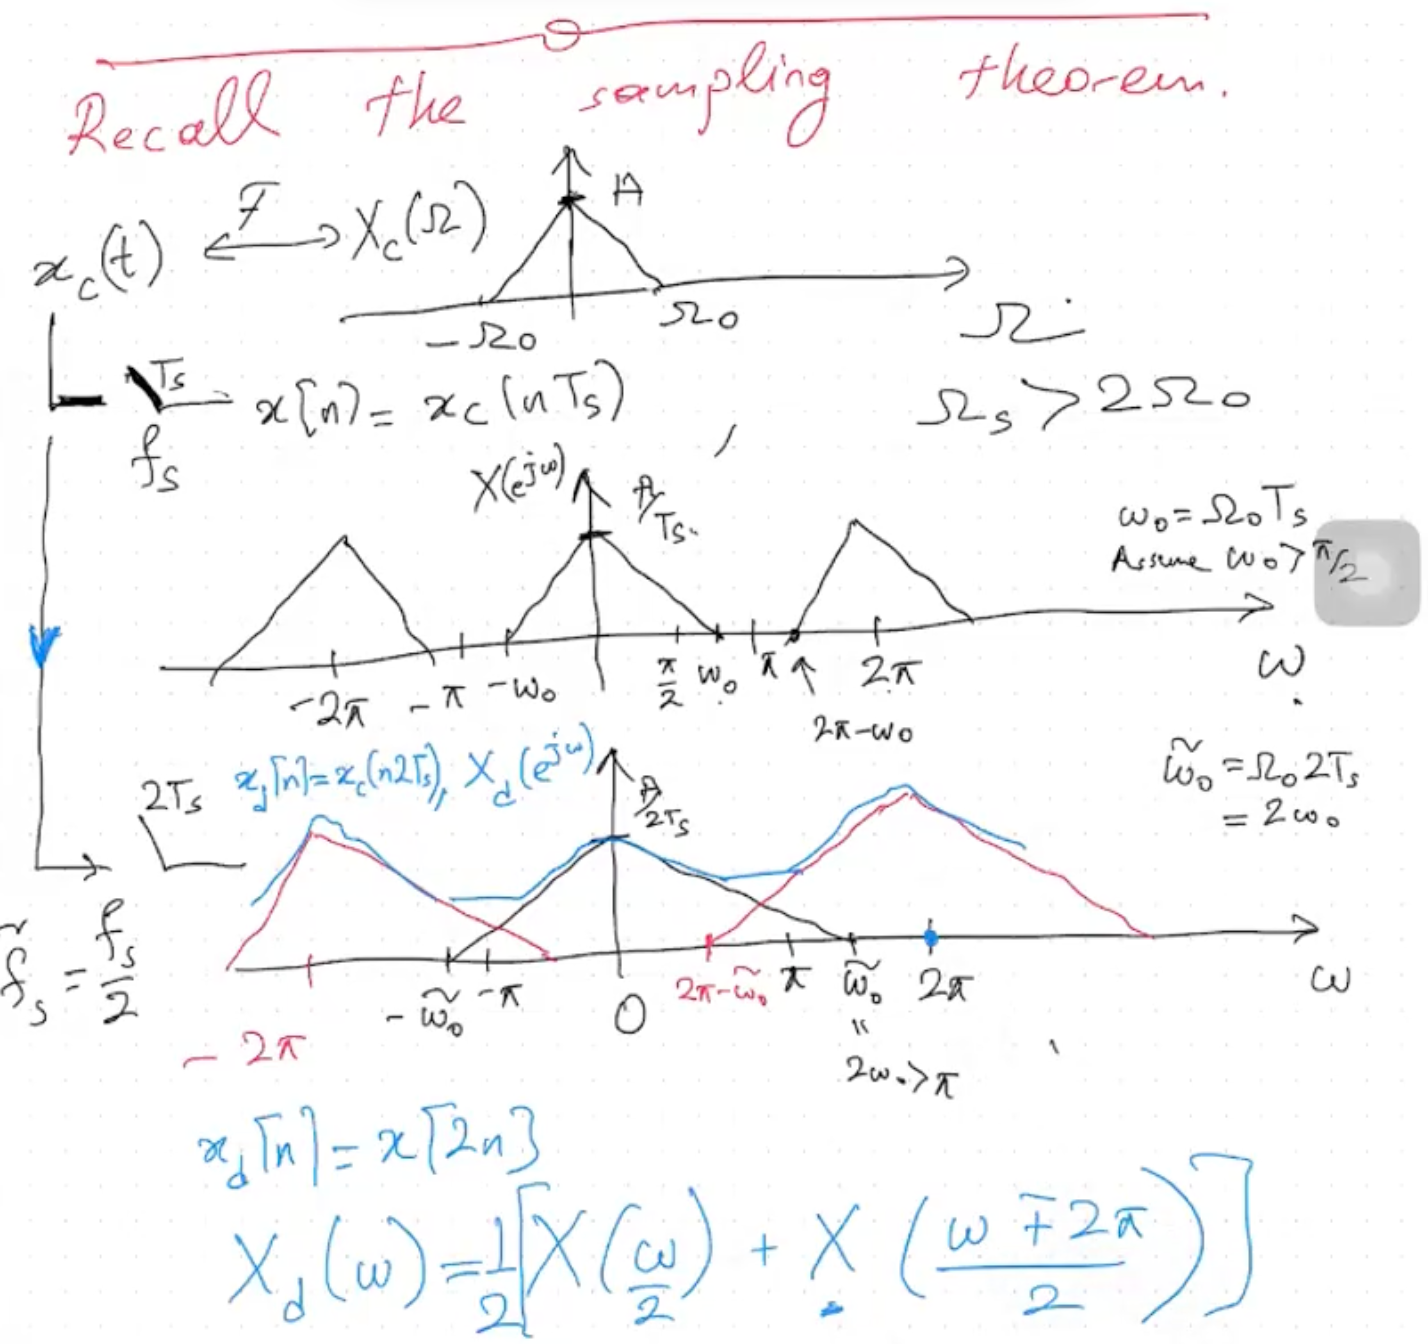 Recall the sampling theorem.
x_c(t) ⟷ℱ X_c(Ω)
A
-Ω₀ Ω₀ Ω
T_s
f_s
x[n] = x_c(nT_s) , Ω_s > 2Ω₀
X(e^{jω}) A/T_s
ω₀ = Ω₀T_s
Assume ω₀ > π/2
-2π -π -ω₀ π/2 ω₀ π 2π ω
2π-ω₀
2T_s
x_d[n] = x_c(n2T_s), X_d(e^{jω}) A/2T_s
ω̃₀ = Ω₀2T_s
= 2ω₀
f̃_s = f_s/2
-2π -ω̃₀ -π 0 2π-ω̃₀ π ω̃₀ 2π ω
"
2ω₀>π
x_d[n] = x[2n]
X_d(ω) = 1/2 [X(ω/2) + X((ω∓2π)/2)]